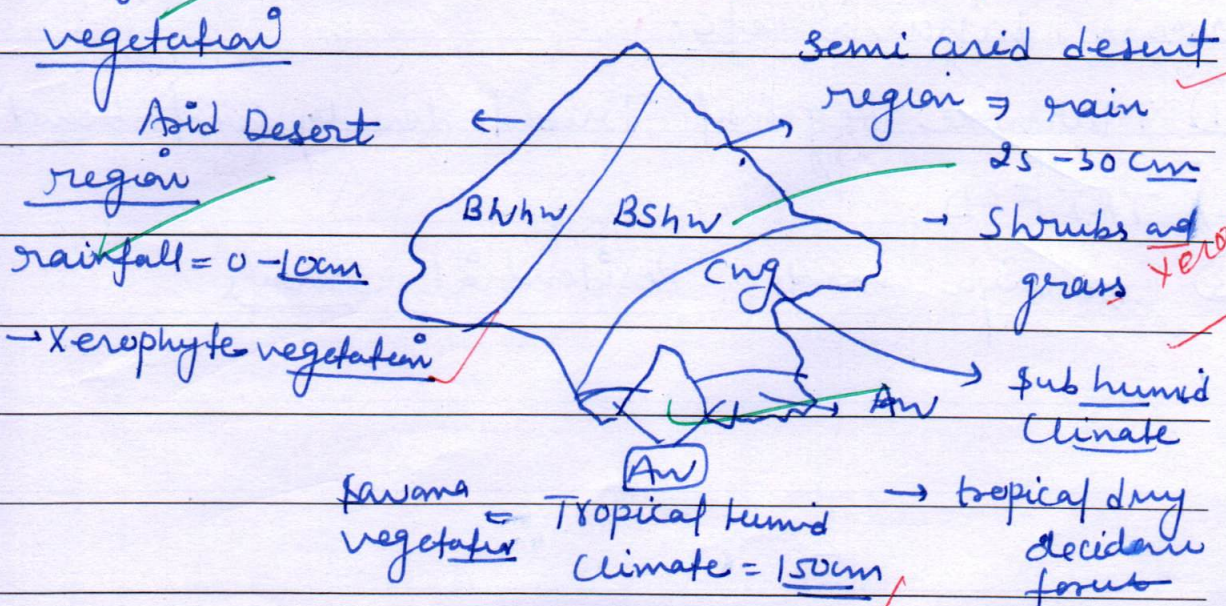 vegetation
Arid Desert
region
rainfall = 0-10cm
→ Xerophyte vegetation
Semi arid desert
region ⇒ rain
25-50cm
→ Shrubs and
grass
xero
BWhw
BShw
Cwg
Aw
Sub humid
Climate
→ tropical dry
deciduous
forest
Aw
Savana
vegetation = Tropical humid
Climate = 150cm